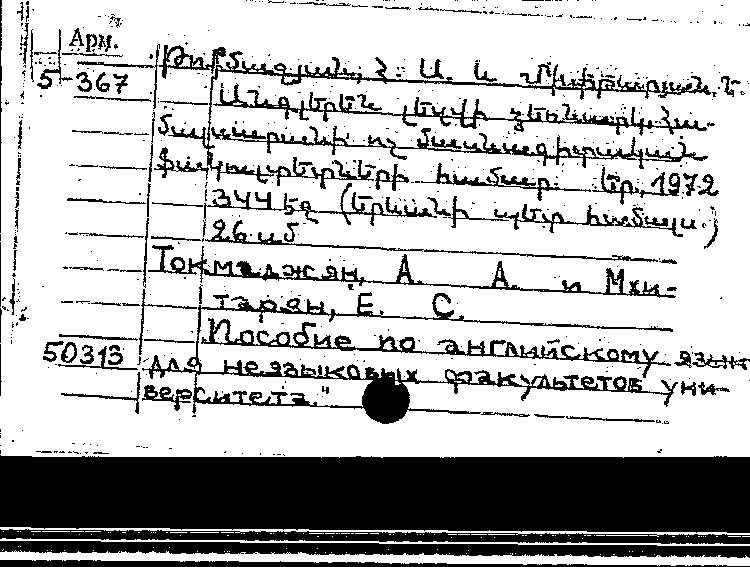 Арм.
5-367
Ա. և
Անգլերեն լեզվի ձեռնարկ հա-
մալսարանի ոչ մասնագիտական
ֆակուլտետների համար. Եր., 1972
344 էջ (Երևանի պետ համալս.)
26 սմ
Токмаджян, А. А. и Мхи-
тарян, Е. С.
Пособие по английскому язык
50313 для неязыковых факультетов уни-
верситета."